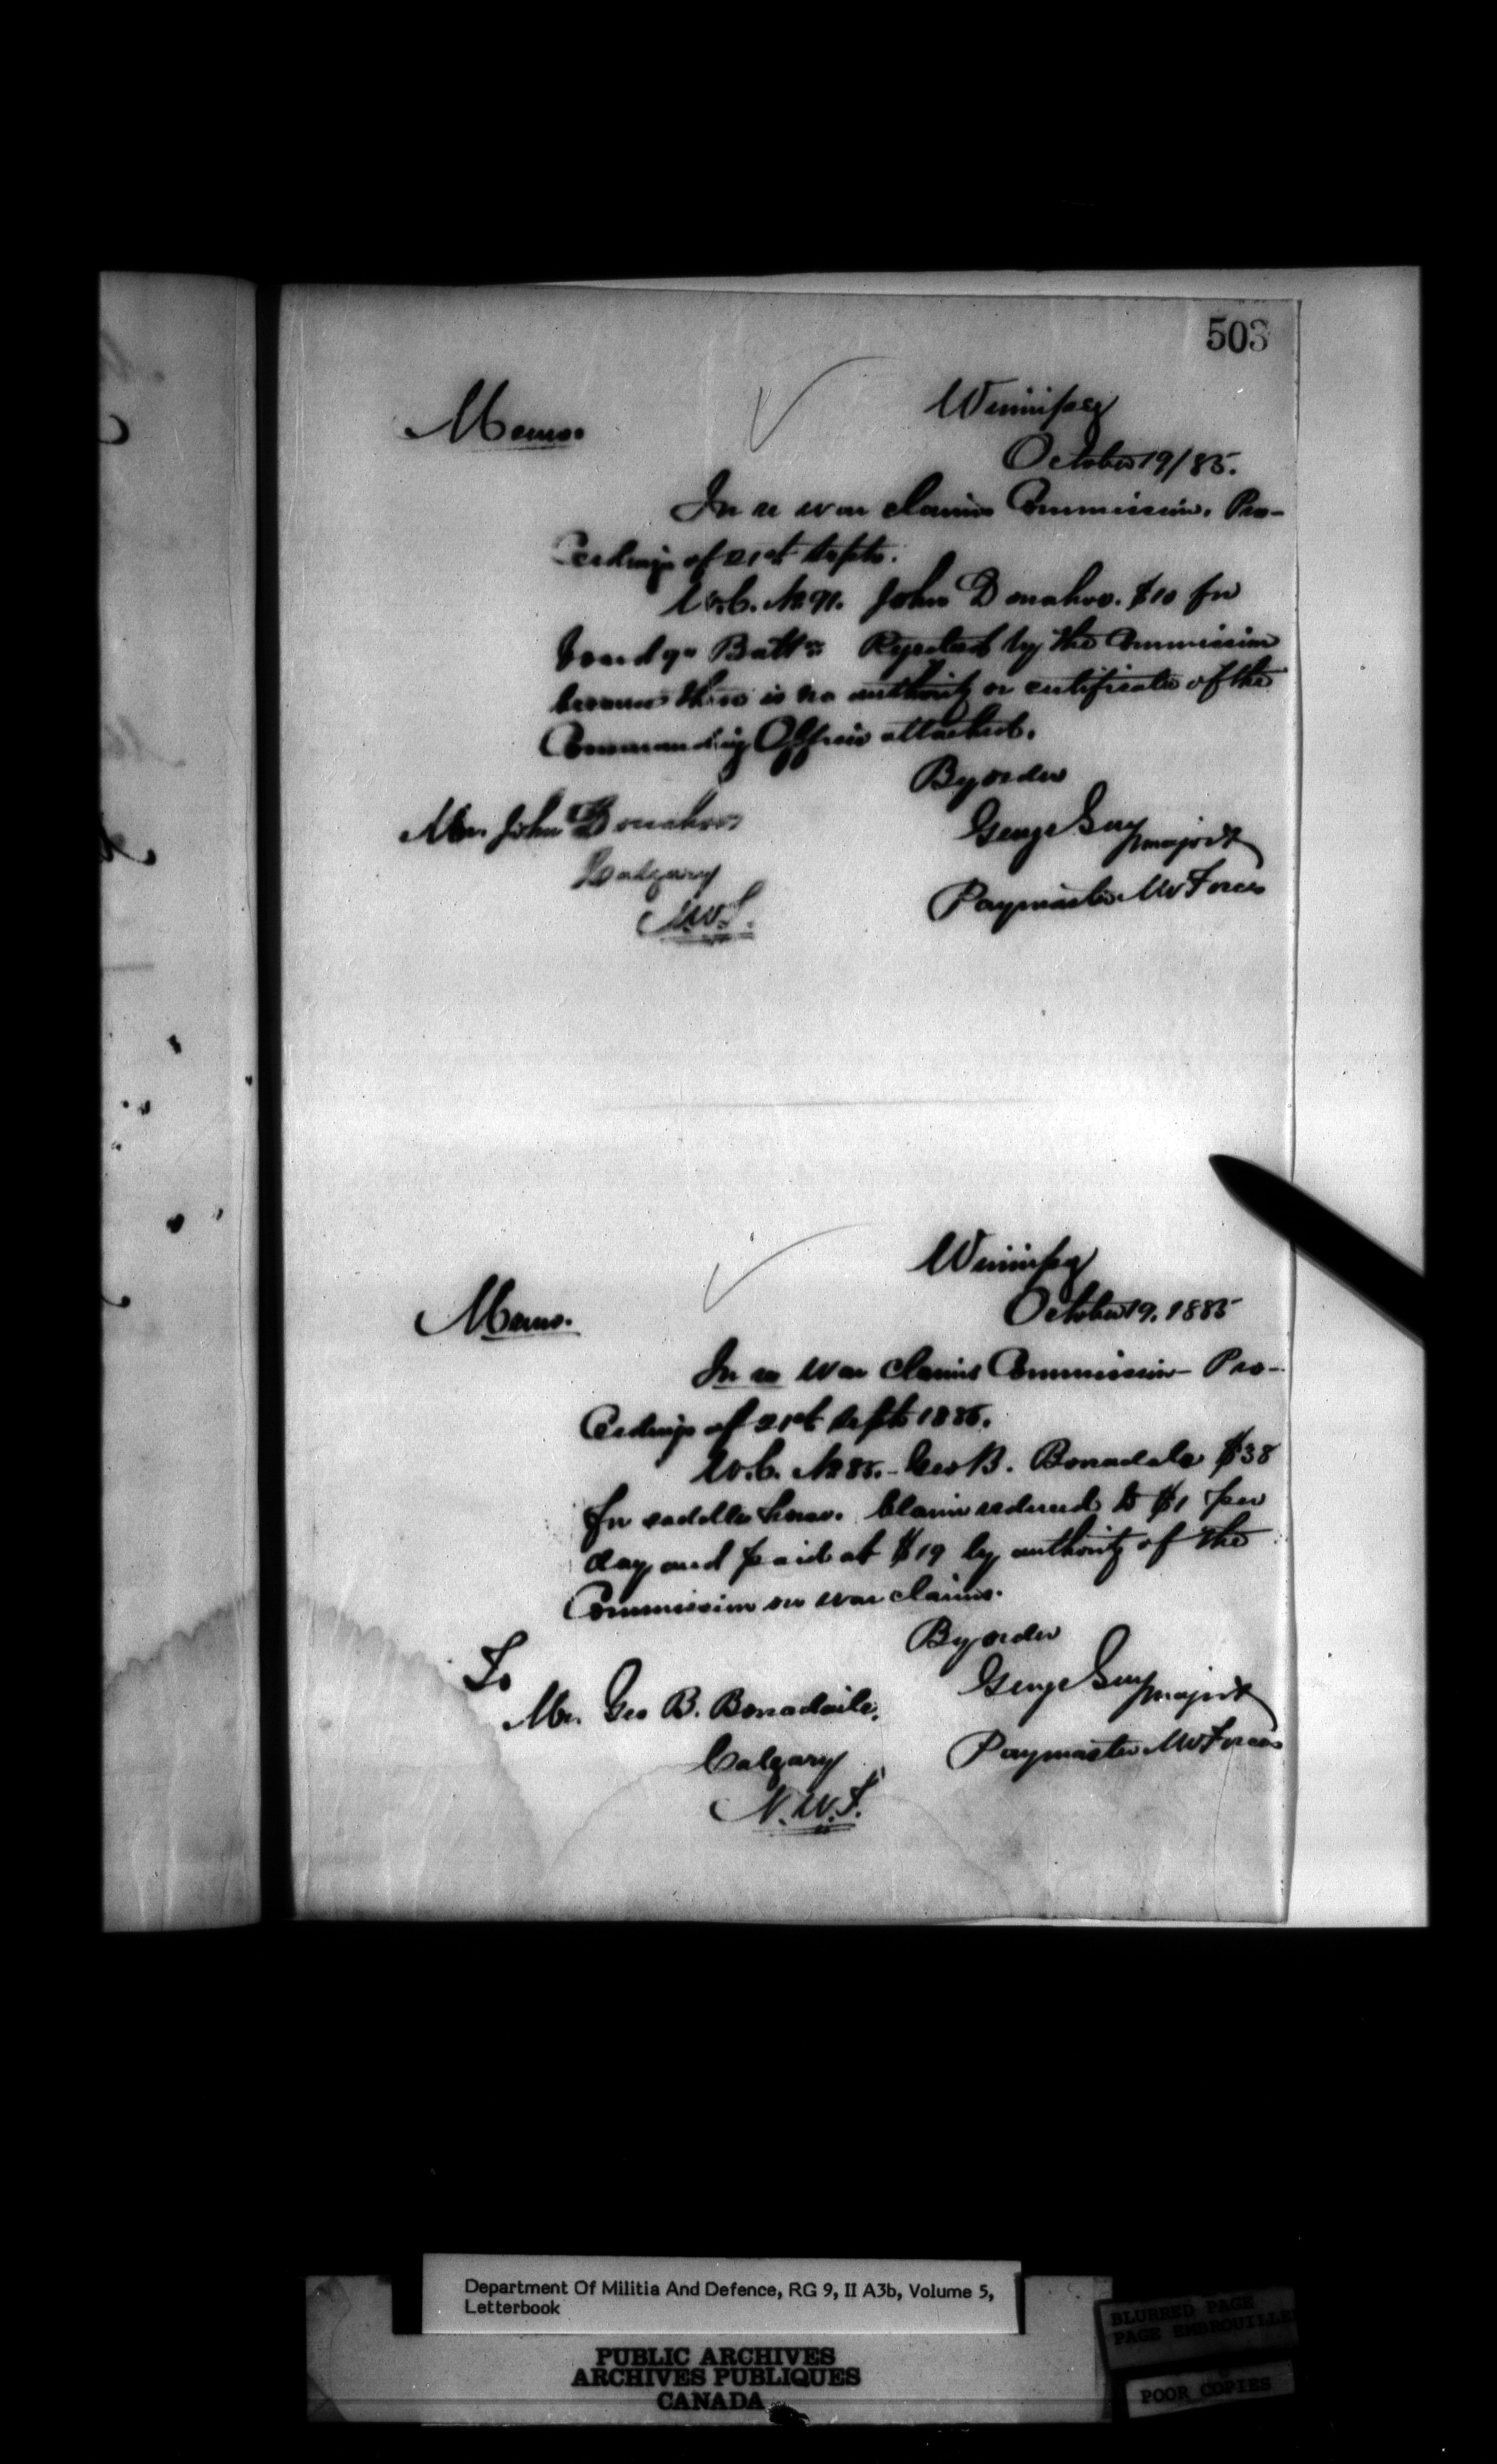 503
Memo.
Winnipeg
October 19/85.
In re war claims Commission. Pro-
ceedings of 21st Septr.
W.C. No 91. John Donahoo. $10 for
Batt. Rejected by the Commission
because there is no authority or certificate of the
Commanding Officer attached.
By order
Mr. John Donahoo
Calgary
N.W.T.
George Guy Major
Paymaster NW Forces
Winnipeg
Memo.
October 19. 1885
In re war claims Commission - Pro-
ceedings of 21st Septr 1885.
W.C. No 85. - Geo B. Bonadale $38
for saddle horse. Claim reduced to $1 per
day and paid at $19 by authority of the
Commission on war claims.
By order
To
Mr. Geo B. Bonadaile.
Calgary
N.W.T.
George Guy Major
Paymaster NW Forces
Department Of Militia And Defence, RG 9, II A3b, Volume 5,
Letterbook
PUBLIC ARCHIVES
ARCHIVES PUBLIQUES
CANADA
BLURRED PAGE
PAGE EMBROUILLE
POOR COPIES